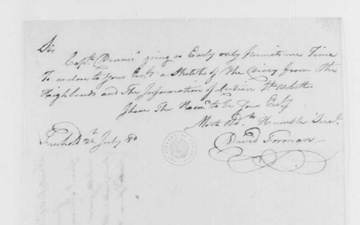 Sir
Capt. Dennis' giving a Early only permits me Time
To enclose to Your Excy a Sketch of The Diary from The
Highlands and The Information of
I have The Hanr. to be Your Excy
Most Obdt. Humble Servt.
David Forman
Freehold 2d. July 80